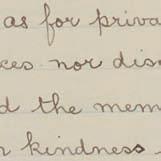 as for priva
ces nor dis
d the mem
n kindness